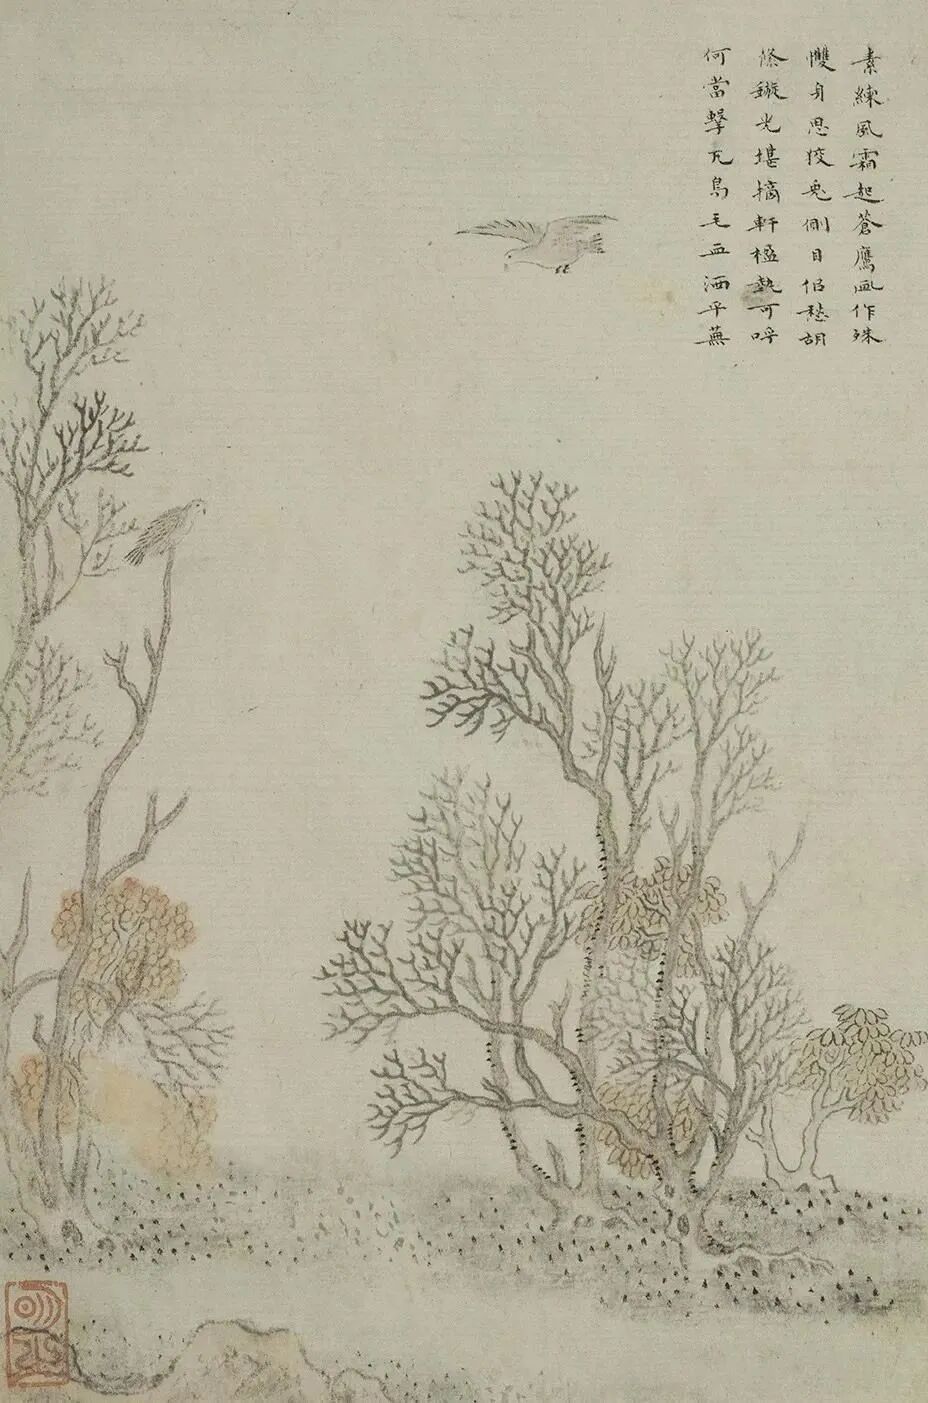 素練風霜起蒼鷹画作殊
㩳身思狡兔側目佀愁胡
絛鏇光堪摘軒楹勢可呼
何當擊凡鳥毛血洒平蕪